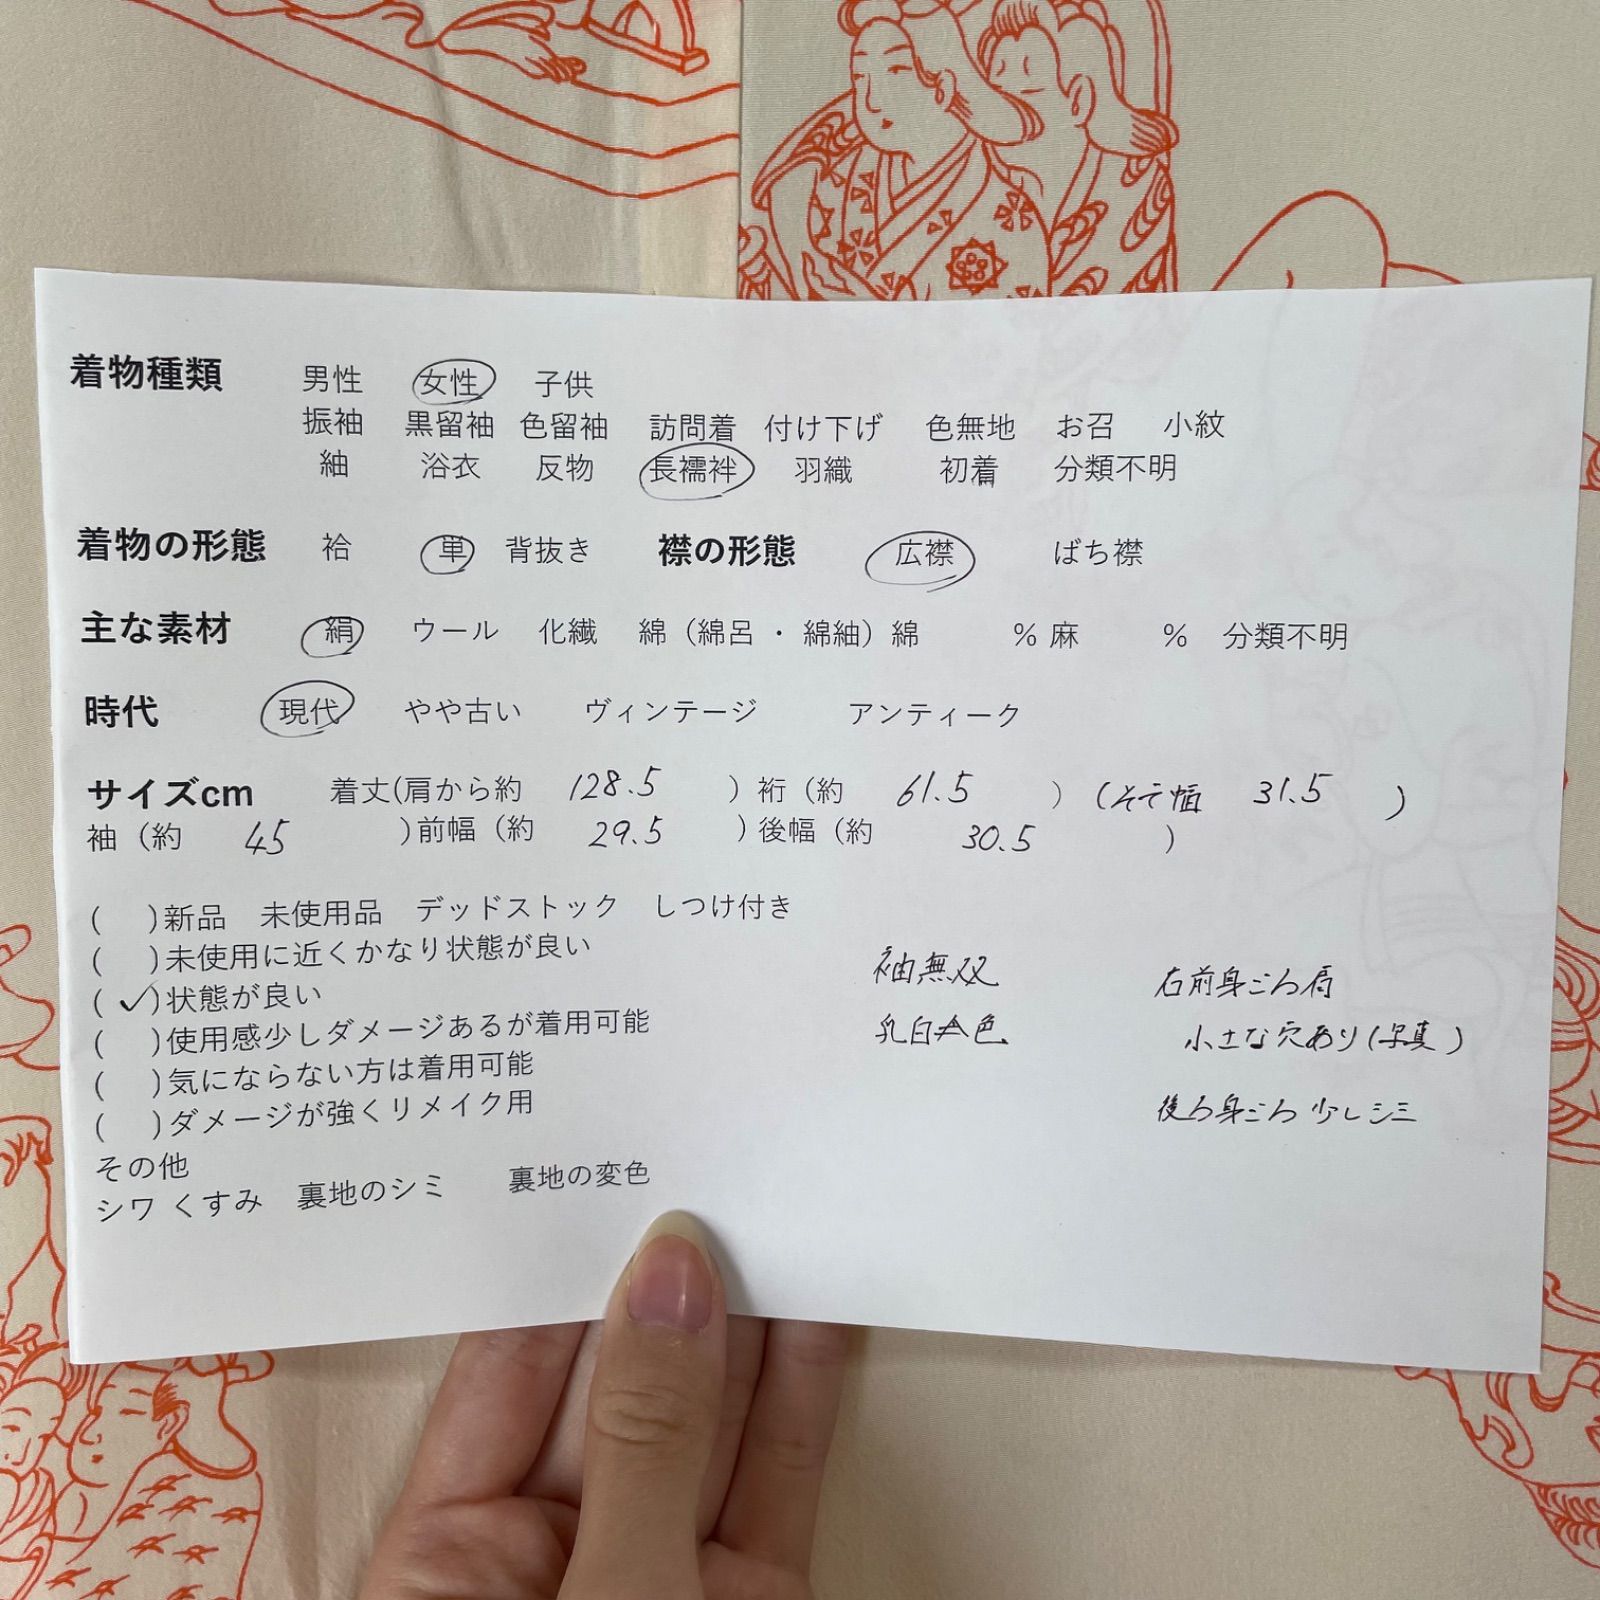 着物種類 男性 女性 子供
振袖 黒留袖 色留袖 訪問着 付け下げ 色無地 お召 小紋
紬 浴衣 反物 長襦袢 羽織 初着 分類不明
着物の形態 袷 単 背抜き 襟の形態 広襟 ばち襟
主な素材 絹 ウール 化繊 綿（綿呂・綿紬）綿 % 麻 % 分類不明
時代 現代 やや古い ヴィンテージ アンティーク
サイズcm 着丈(肩から約 128.5 ）裄（約 61.5 ）（そで幅 31.5 ）
袖（約 45 )前幅（約 29.5 ）後幅（約 30.5 ）
( )新品 未使用品 デッドストック しつけ付き
( )未使用に近くかなり状態が良い
(✓)状態が良い
( )使用感少しダメージあるが着用可能
( )気にならない方は着用可能
( )ダメージが強くリメイク用
その他
シワ くすみ 裏地のシミ 裏地の変色
袖無双
乳白色
右前身ごろ肩
小さな穴あり(写真)
後ろ身ごろ 少しシミ